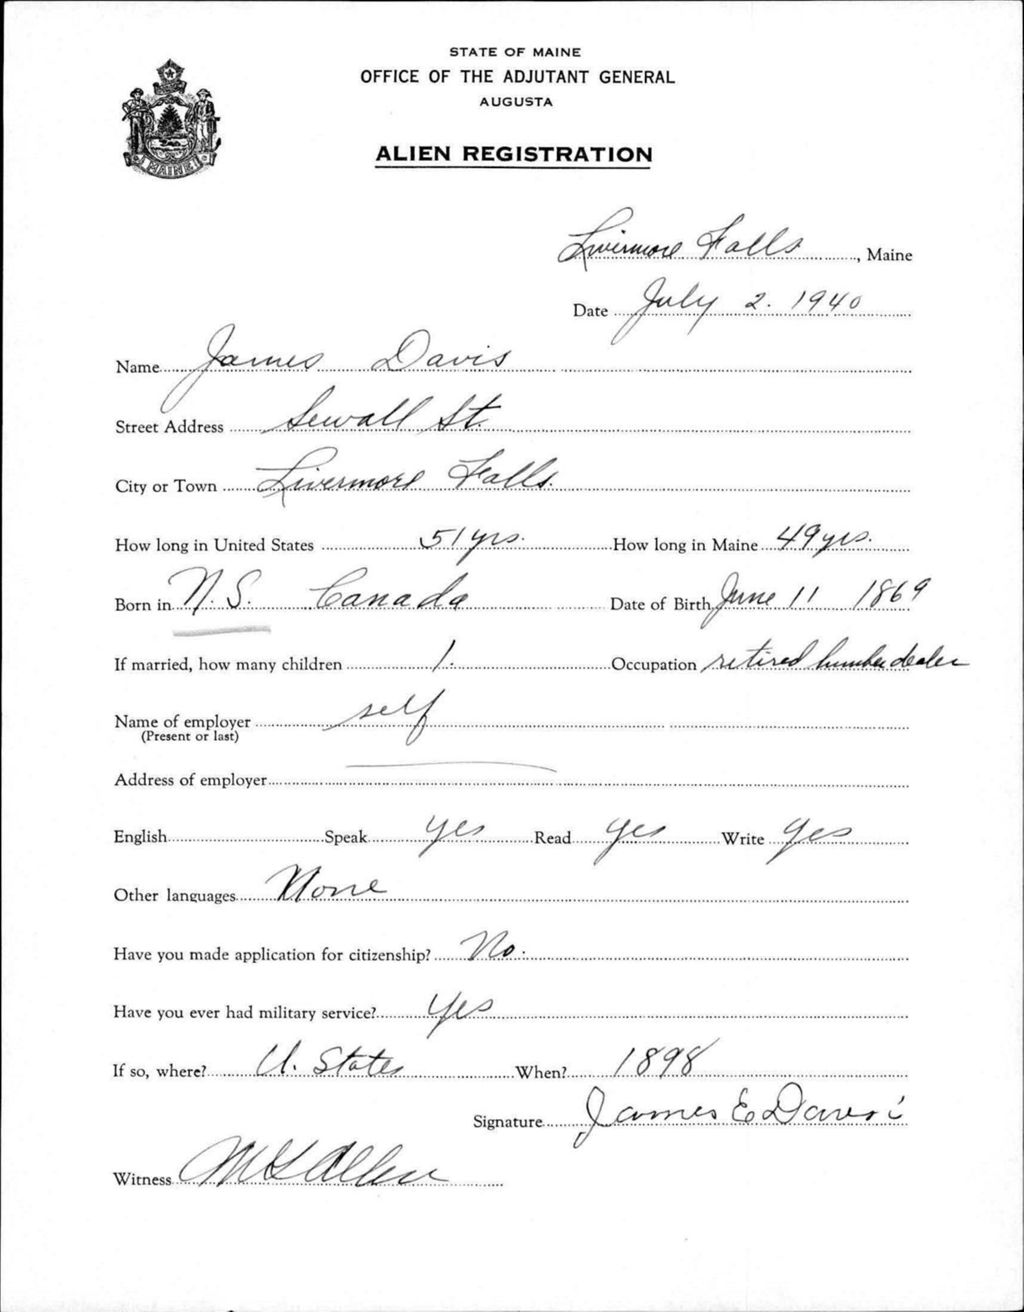 STATE OF MAINE
OFFICE OF THE ADJUTANT GENERAL
AUGUSTA
ALIEN REGISTRATION
MAINE
Livermore Falls, Maine
Date July 2. 1940
Name James Davis
Street Address Sewall St.
City or Town Livermore Falls.
How long in United States 51 yrs. How long in Maine 49 yrs.
Born in N. S. Canada Date of Birth June 11 1869
If married, how many children 1. Occupation retired lumber dealer
Name of employer self
(Present or last)
Address of employer
English Speak yes Read yes Write yes
Other languages None
Have you made application for citizenship? No.
Have you ever had military service? yes
If so, where? U. States When? 1898
Signature James E Davis
Witness Allen